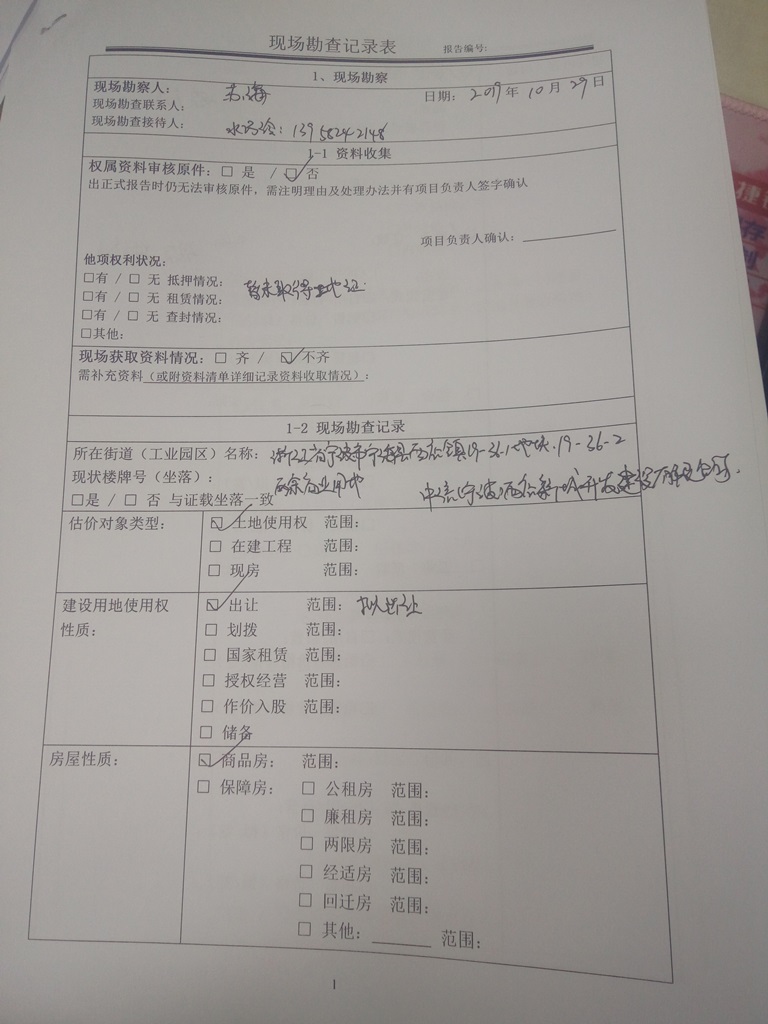 现场勘查记录表 报告编号:
1、现场勘察
现场勘察人: 日期: 2019年10月29日
现场勘查联系人:
现场勘查接待人: 13958242148
1-1 资料收集
权属资料审核原件: □ 是 / ☑ 否
出正式报告时仍无法审核原件，需注明理由及处理办法并有项目负责人签字确认
项目负责人确认:
他项权利状况:
□有 / □ 无 抵押情况: 暂未取得土地证
□有 / □ 无 租赁情况:
□有 / □ 无 查封情况:
□其他:
现场获取资料情况: □ 齐 / ☑ 不齐
需补充资料(或附资料清单详细记录资料收取情况):
1-2 现场勘查记录
所在街道（工业园区）名称: 浙江省宁波市宁海县西店镇19-26-1地块、19-26-2
现状楼牌号（坐落）: 商业用地
□是 / □ 否 与证载坐落一致 开发建设有限公司.
估价对象类型: ☑ 土地使用权 范围:
□ 在建工程 范围:
□ 现房 范围:
建设用地使用权 ☑ 出让 范围: 拟出让
性质: □ 划拨 范围:
□ 国家租赁 范围:
□ 授权经营 范围:
□ 作价入股 范围:
□ 储备
房屋性质: ☑ 商品房: 范围:
□ 保障房: □ 公租房 范围:
□ 廉租房 范围:
□ 两限房 范围:
□ 经适房 范围:
□ 回迁房 范围:
□ 其他: ______ 范围:
1